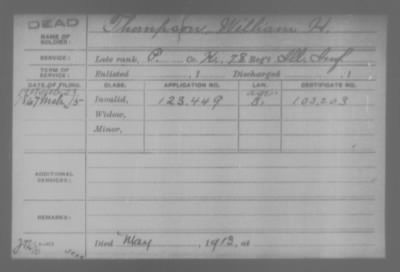 DEAD
NAME OF SOLDIER: Thompson, William H.
SERVICE: Late rank, P. Co. K, 78 Reg't Ill. Inf
TERM OF SERVICE: Enlisted , 1 Discharged , 1
DATE OF FILING. CLASS. APPLICATION NO. LAW. CERTIFICATE NO.
1867 Mch 15 Invalid, 123.449 103.203
Widow,
Minor,
ADDITIONAL SERVICES:
REMARKS:
Died May , 1913, at